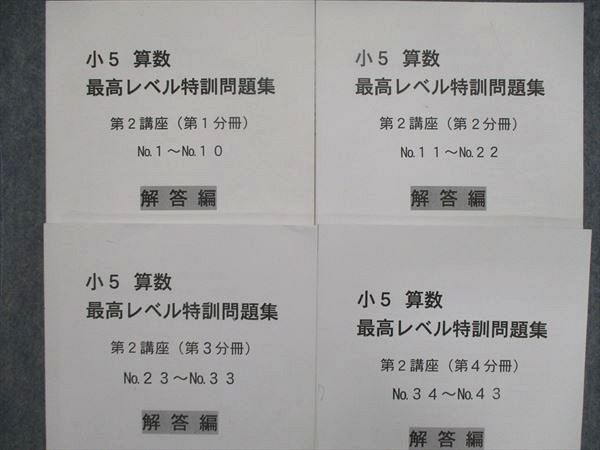 小５ 算数
最高レベル特訓問題集
第２講座（第１分冊）
№１～№１０
解答編
小５ 算数
最高レベル特訓問題集
第２講座（第２分冊）
№１１～№２２
解答編
小５ 算数
最高レベル特訓問題集
第２講座（第３分冊）
№２３～№３３
解答編
小５ 算数
最高レベル特訓問題集
第２講座（第４分冊）
№３４～№４３
解答編